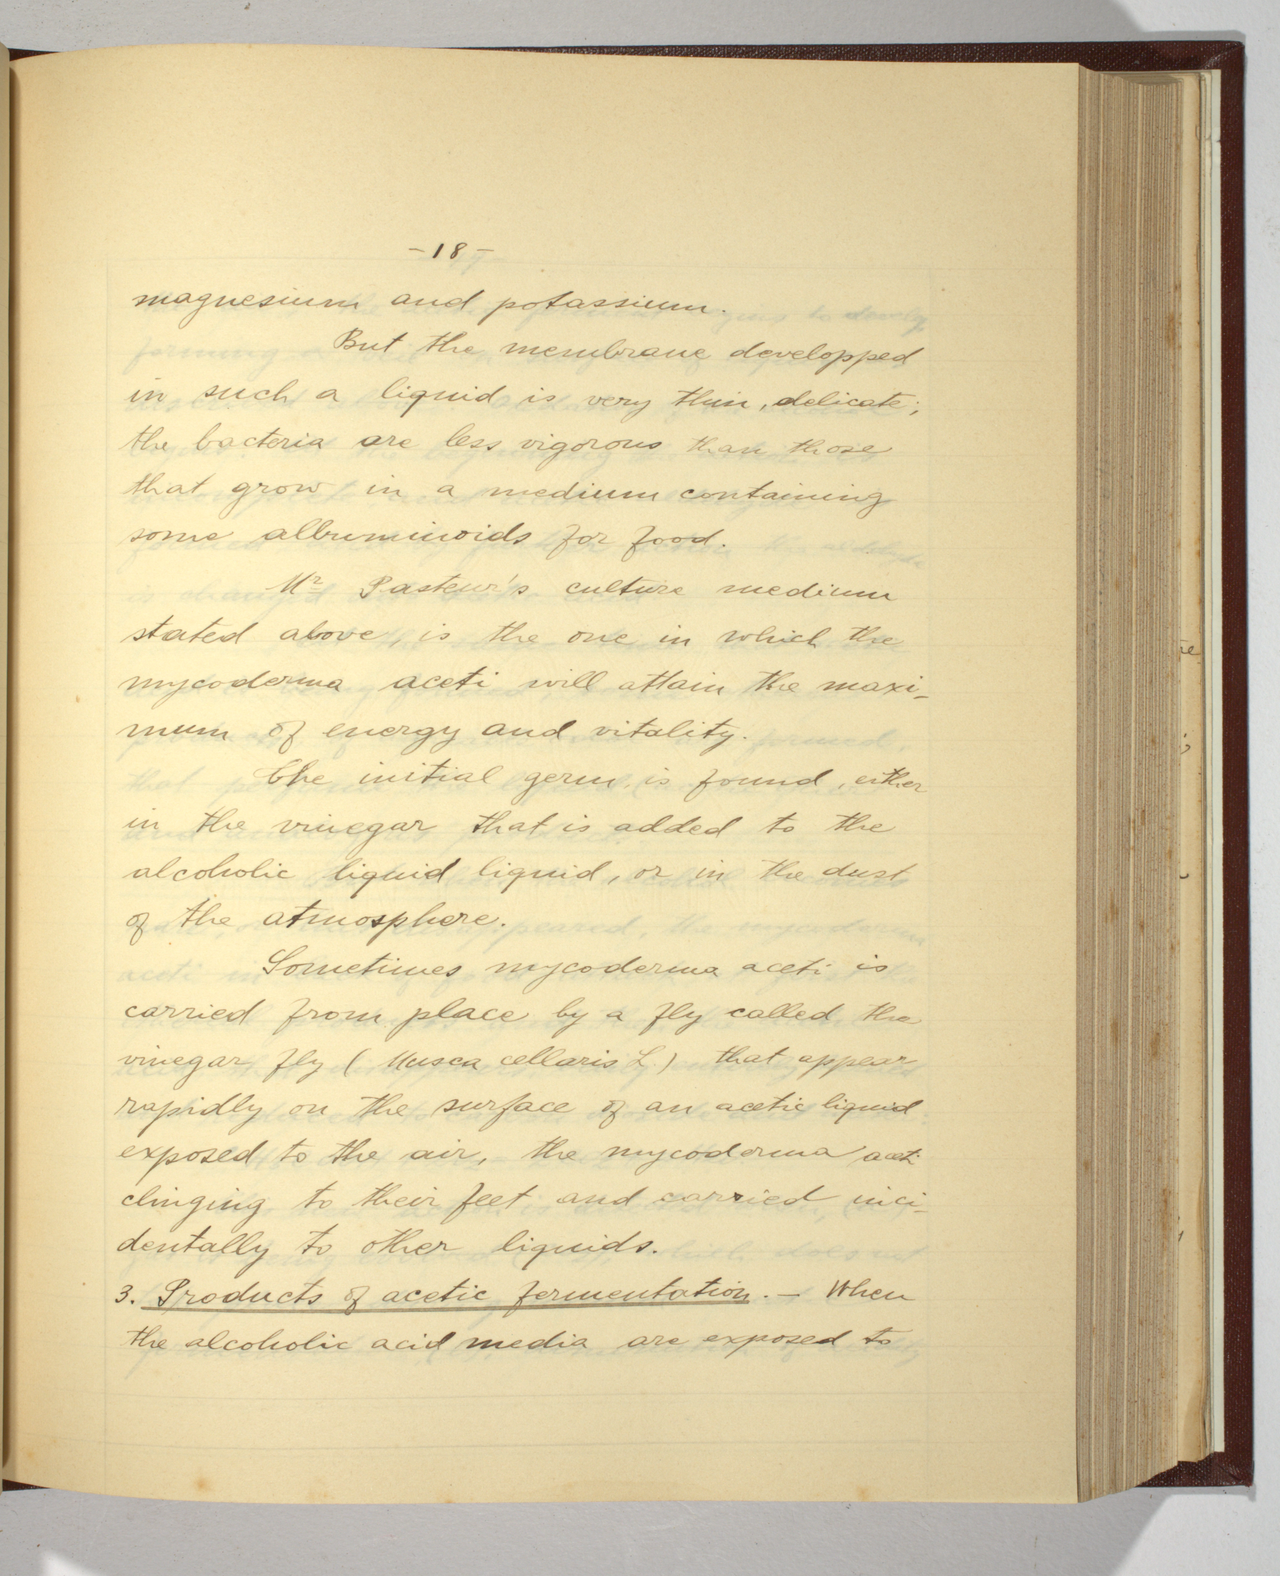 -18-
magnesium and potassium.
But the membrane developped
in such a liquid is very thin, delicate;
the bacteria are less vigorous than those
that grow in a medium containing
some albuminoids for food.
Mr Pasteur's culture medium
stated above, is the one in which the
mycoderma aceti will attain the maxi-
mum of energy and vitality.
The initial germ is found, either
in the vinegar that is added to the
alcoholic liquid liquid, or in the dust
of the atmosphere.
Sometimes mycoderma aceti is
carried from place by a fly called the
vinegar fly (Musca cellaris L.) that appear
rapidly on the surface of an acetic liquid
exposed to the air, the mycoderma aceti
clinging to their feet and carried inci-
dentally to other liquids.
3. Products of acetic fermentation. — When
the alcoholic acid media are exposed to